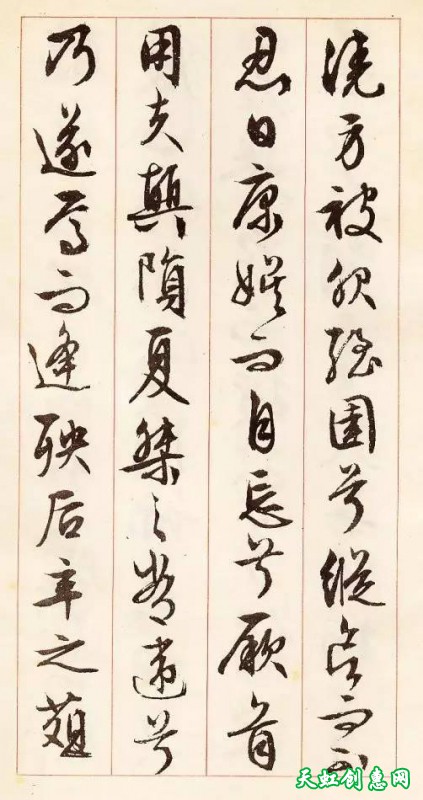 澆身被服强圉兮縱欲而不
忍日康娱而自忘兮厥首
用夫顛隕夏桀之常違兮
乃遂焉而逢殃后辛之菹
天虹创惠网